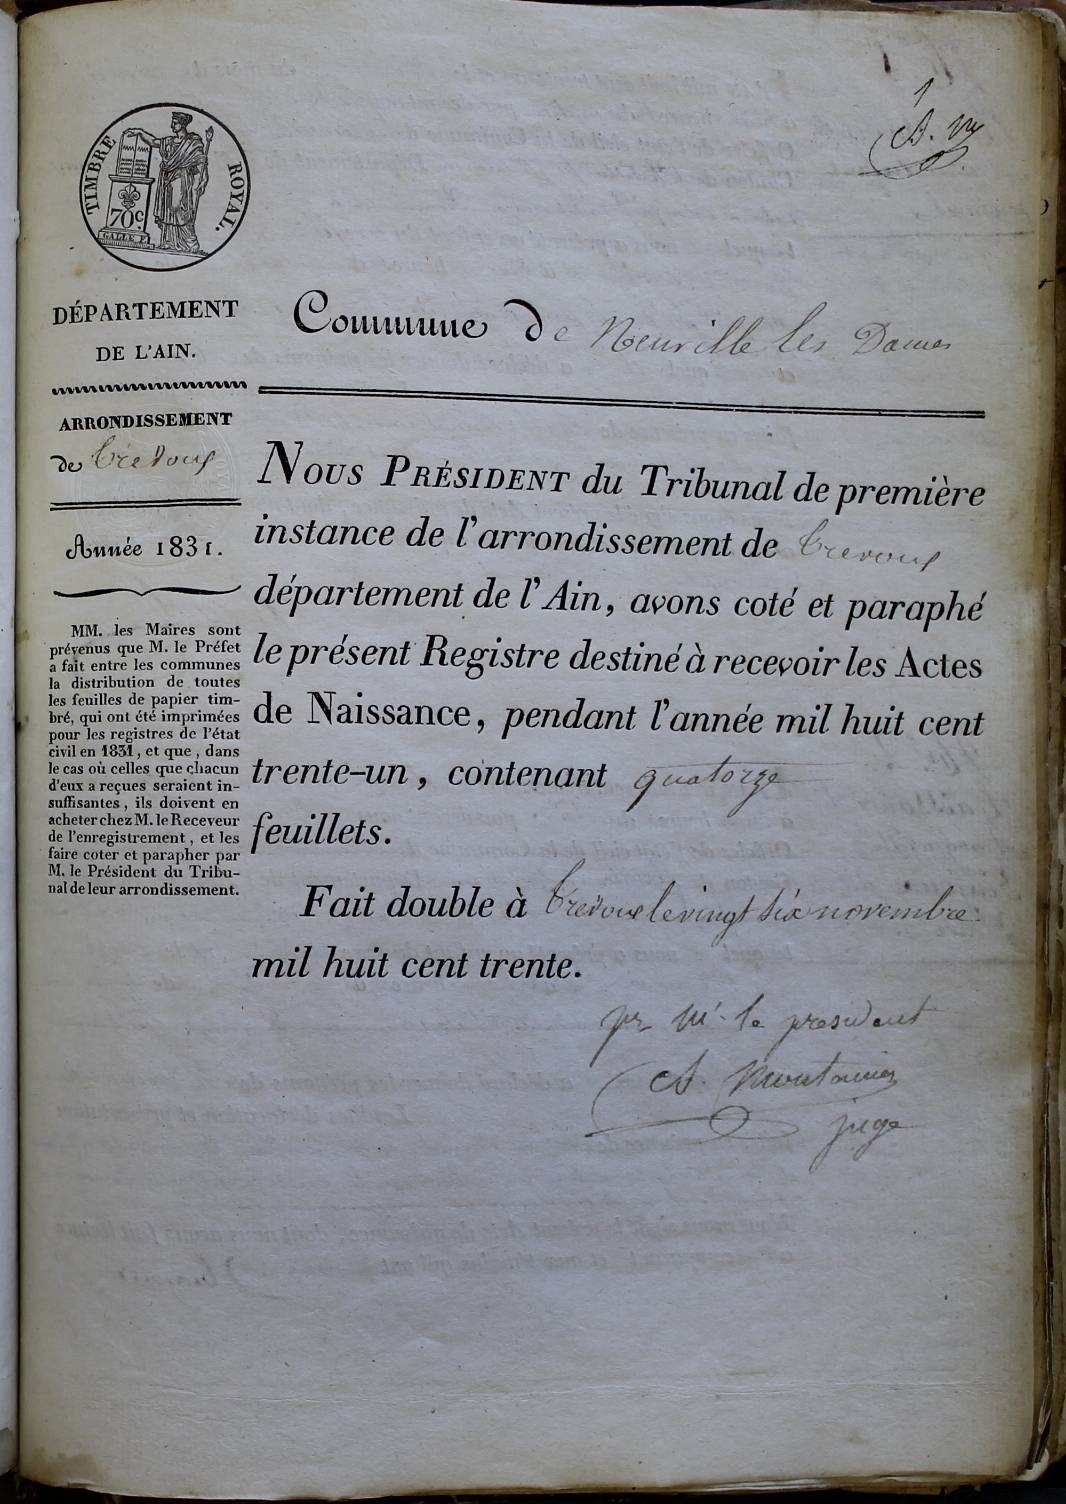 1
TIMBRE ROYAL.
70c.
DÉPARTEMENT
DE L'AIN.
Commune de Neuville les Dames
ARRONDISSEMENT
de Trevoux
Année 1831.
MM. les Maires sont
prévenus que M. le Préfet
a fait entre les communes
la distribution de toutes
les feuilles de papier tim-
bré, qui ont été imprimées
pour les registres de l'état
civil en 1831, et que, dans
le cas où celles que chacun
d'eux a reçues seraient in-
suffisantes, ils doivent en
acheter chez M. le Receveur
de l'enregistrement, et les
faire coter et parapher par
M. le Président du Tribu-
nal de leur arrondissement.
NOUS PRÉSIDENT du Tribunal de première
instance de l'arrondissement de Trevoux
département de l'Ain, avons coté et paraphé
le présent Registre destiné à recevoir les Actes
de Naissance, pendant l'année mil huit cent
trente-un, contenant quatorze
feuillets.
Fait double à Trevoux le vingt six novembre
mil huit cent trente.
pr Mr le president
juge